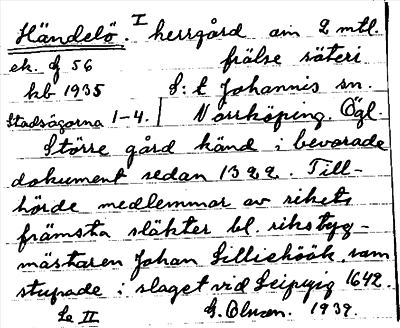 Händelö. I herrgård om 2 mtl.
ek. bf 56 frälse säteri
kb 1935 S:t Johannis sn.
Stadsägorna 1-4. Norrköping. Ögl.
Större gård känd i bevarade
dokument sedan 1322. Till-
hörde medlemmar av rikets
främsta släkter bl. rikstyg-
mästaren Johan Lilliehöök som
stupade i slaget vid Leipzig 1642.
Le II G. Olsson. 1939.